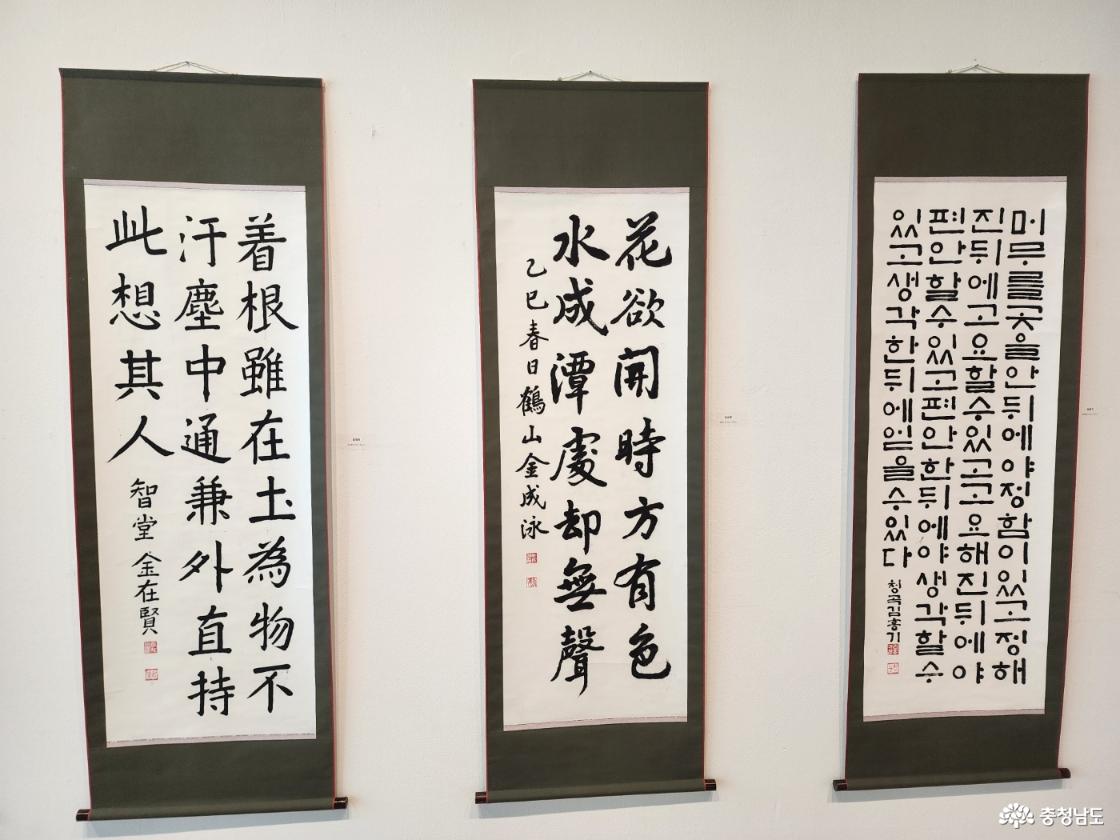 着根雖在土為物不
汗塵中通兼外直持
此想其人
智堂 金在賢
花欲開時方有色
水成潭處却無聲
乙巳春日鶴山金成泳
머무를곳을안뒤에야정함이있고정해
진뒤에고요할수있고고요해진뒤에야
편안할수있고편안한뒤에야생각할수
있고생각한뒤에얻을수있다
청곡김홍기
충청남도